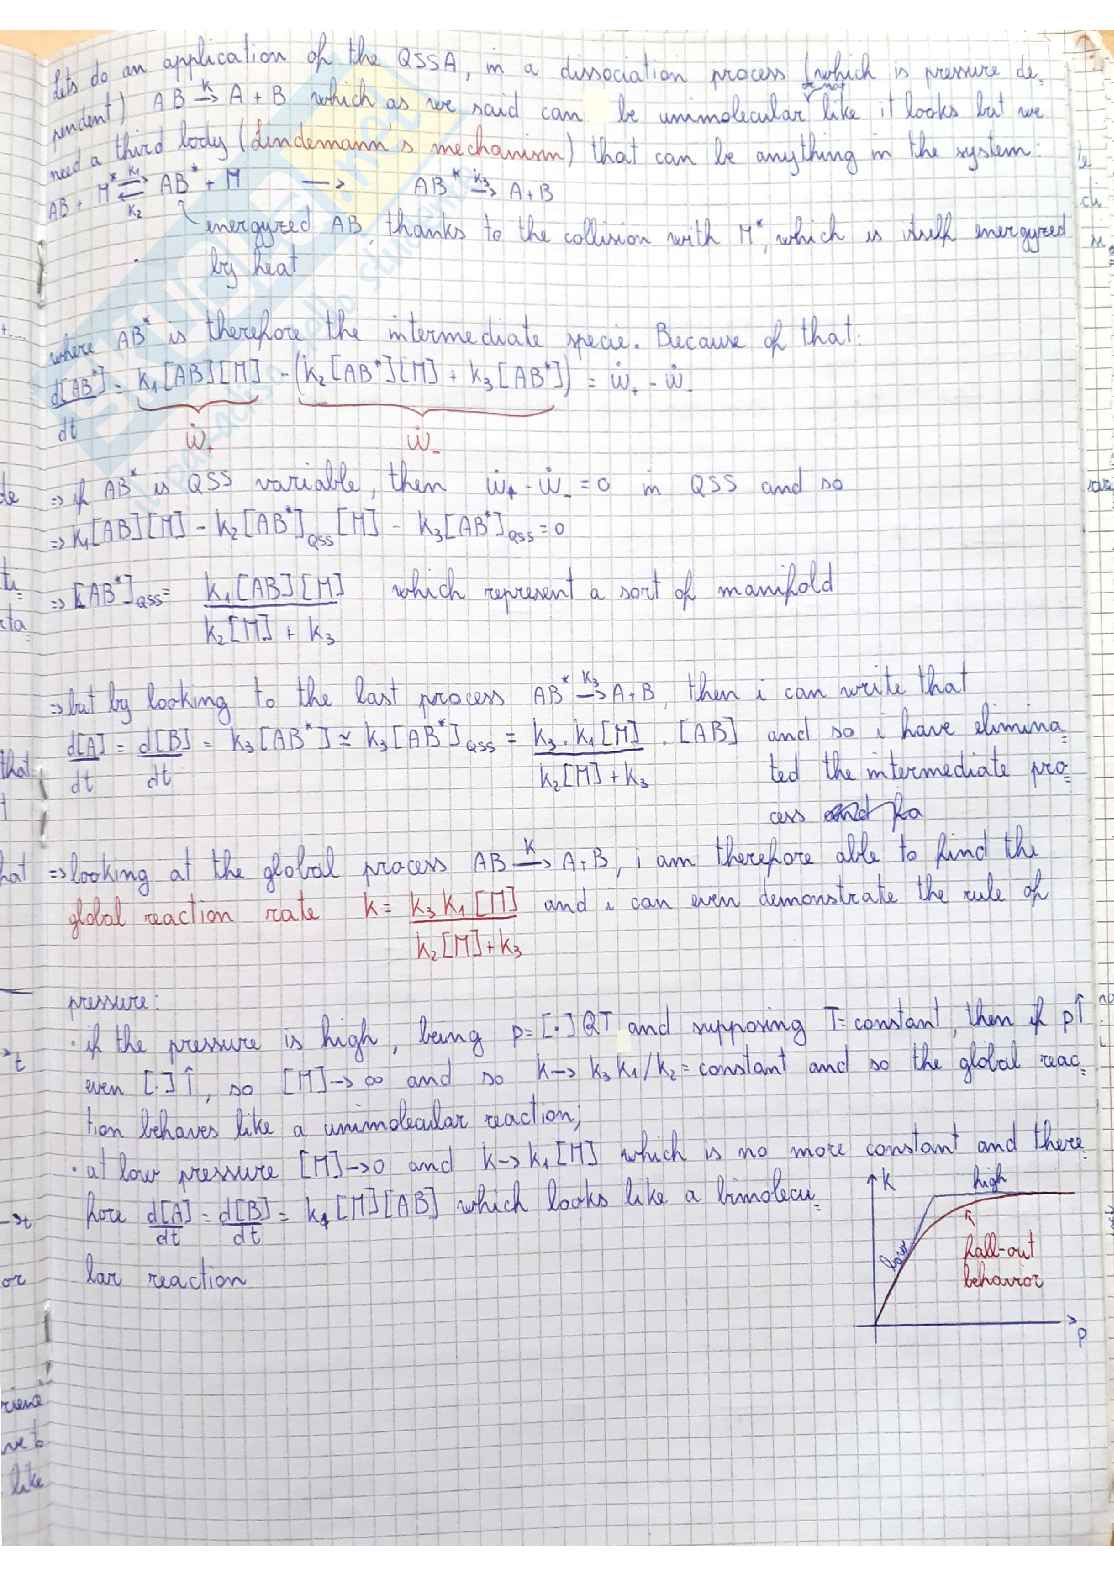 Lets do an application of the QSSA, in a dissociation process (which is pressure de-
pendent) AB →k A + B which as we said can not be unimolecular like it looks but we
need a third body (Lindemann's mechanism) that can be anything in the system:
AB + M* ⇌ AB* + M → AB* →k3 A + B
k1
k2
energyzed AB, thanks to the collision with M*, which is itself energyzed
by heat
where AB* is therefore the intermediate specie. Because of that:
d[AB*]/dt = k1[AB][M] - (k2[AB*][M] + k3[AB*]) = ẇ+ - ẇ-
ẇ+ ẇ-
⇒ if AB* is QSS variable, then ẇ+ - ẇ- = 0 in QSS and so
⇒ k1[AB][M] - k2[AB*]QSS[M] - k3[AB*]QSS = 0
⇒ [AB*]QSS = k1[AB][M] / k2[M] + k3 which represent a sort of manifold
⇒ but by looking to the last process AB* →k3 A + B, then i can write that
d[A]/dt = d[B]/dt = k3[AB*] ≃ k3[AB*]QSS = k3·k1[M] / k2[M] + k3 · [AB] and so i have elimina-
ted the intermediate pro-
cess
⇒ looking at the global process AB →k A + B, i am therefore able to find the
global reaction rate k = k3 k1 [M] / k2[M] + k3 and i can even demonstrate the rule of
pressure:
· if the pressure is high, being p = [·]RT and supposing T = constant, then if p↑
even [·]↑, so [M] → ∞ and so k → k3 k1/k2 = constant and so the global reac-
tion behaves like a unimolecular reaction;
· at low pressure [M] → 0 and k → k1[M] which is no more constant and there
fore d[A]/dt = d[B]/dt = k1[M][AB] which looks like a bimolecu-
lar reaction
k
high
low
fall-out
behavior
p
that
hat
or
like